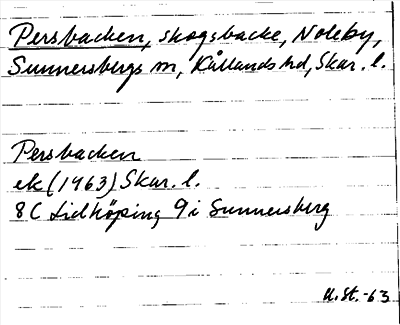 Persbacken, skogsbacke, Noleby,
Sunnersbergs sn, Kållands hd, Skar. l.
Persbacken
ek (1963) Skar. l.
8C Lidköping 9i Sunnersberg
U.St.-63